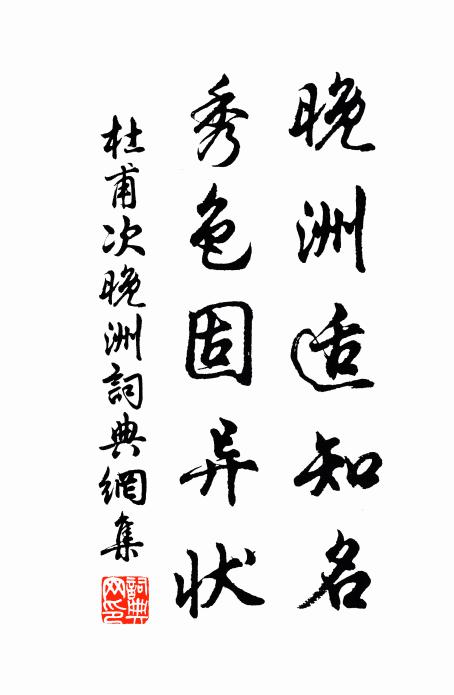 晚洲适知名
秀色固异状
杜甫次晚洲詞典網集
詞典网印